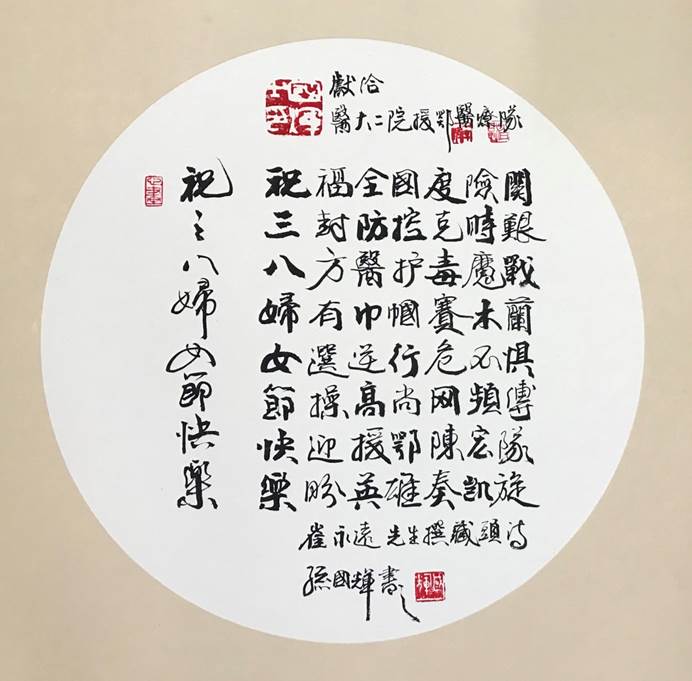 獻给
醫大二院援鄂醫療隊
祝三八婦女節快樂
祝福全國度險関
三封防控克時艱
八方醫护毒魔戰
婦有巾帼賽木蘭
女選逆行危不惧
節操高尚网頻傳
快迎援鄂陳宏隊
樂盼英雄奏凱旋
崔永遠先生撰藏頭诗
孫國輝書